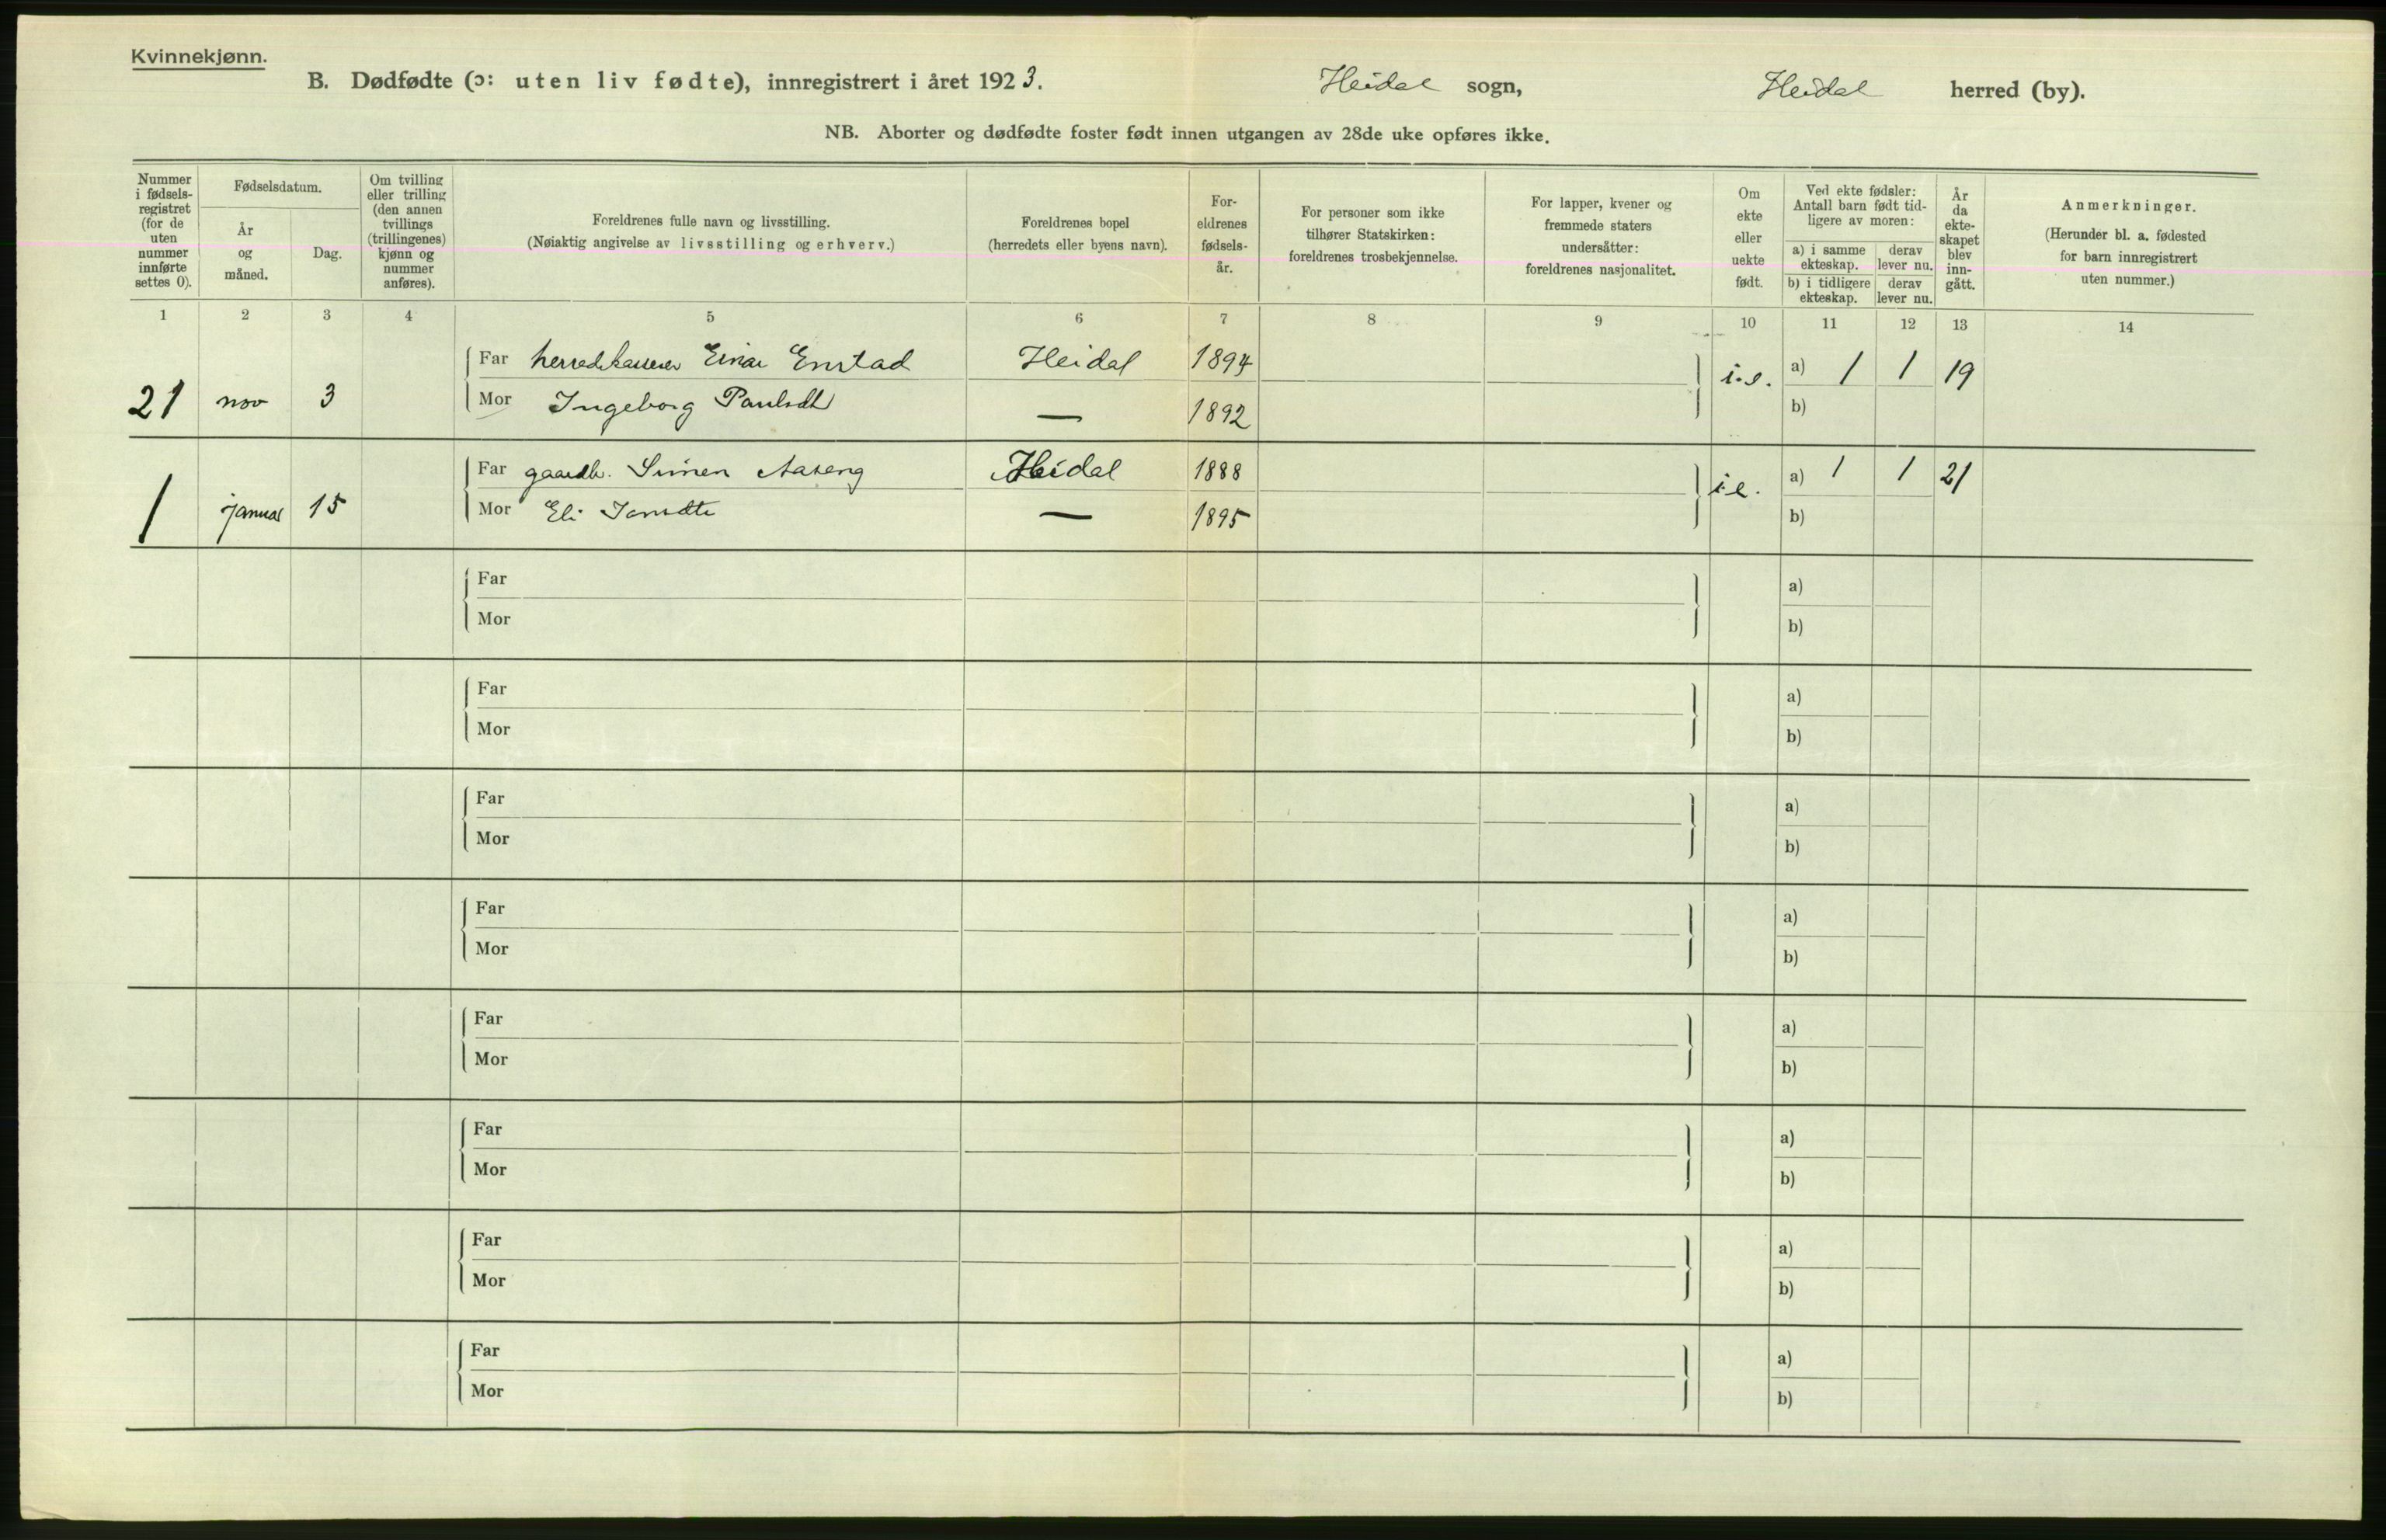 Kvinnekjønn.
B. Dødfødte (ɔ: uten liv fødte), innregistrert i året 1923. Heidal sogn, Heidal herred (by).
NB. Aborter og dødfødte foster født innen utgangen av 28de uke opføres ikke.
Nummer i fødsels-registret (for de uten nummer innførte settes 0).
Fødselsdatum.
År og måned.
Dag.
Om tvilling eller trilling (den annen tvillings (trillingenes) kjønn og nummer anføres).
Foreldrenes fulle navn og livsstilling.
(Nøiaktig angivelse av livsstilling og erhverv.)
Foreldrenes bopel
(herredets eller byens navn).
For-eldrenes fødsels-år.
For personer som ikke tilhører Statskirken: foreldrenes trosbekjennelse.
For lapper, kvener og fremmede staters undersåtter: foreldrenes nasjonalitet.
Om ekte eller uekte født.
Ved ekte fødsler: Antall barn født tid-ligere av moren:
a) i samme ekteskap. derav lever nu.
b) i tidligere ekteskap. derav lever nu.
År da ekte-skapet blev inn-gått.
Anmerkninger.
(Herunder bl. a. fødested for barn innregistrert uten nummer.)
1 2 3 4 5 6 7 8 9 10 11 12 13 14
Far herredskasserer Einar Enstad Heidal 1894 a) 1 1 19
21 nov 3 i.e.
Mor Ingeborg Paulsdt — 1892 b)
Far gaardbr. Simen Aaseng Heidal 1888 a) 1 1 21
1 januar 15 i.e.
Mor Eli Jonsdtr — 1895 b)
Far a)
Mor b)
Far a)
Mor b)
Far a)
Mor b)
Far a)
Mor b)
Far a)
Mor b)
Far a)
Mor b)
Far a)
Mor b)
Far a)
Mor b)